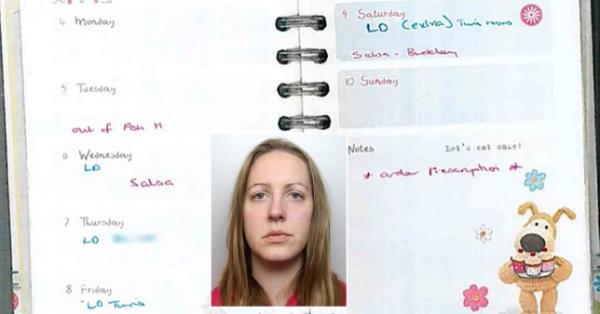 4 Monday
5 Tuesday
out of Ash H
6 Wednesday
LD
Salsa
7 Thursday
LD
8 Friday
LD Twins
9 Saturday
LD (extra) Twin resus
Salsa - Buckley
10 Sunday
Notes
Let's eat cake!
* order Prescription *